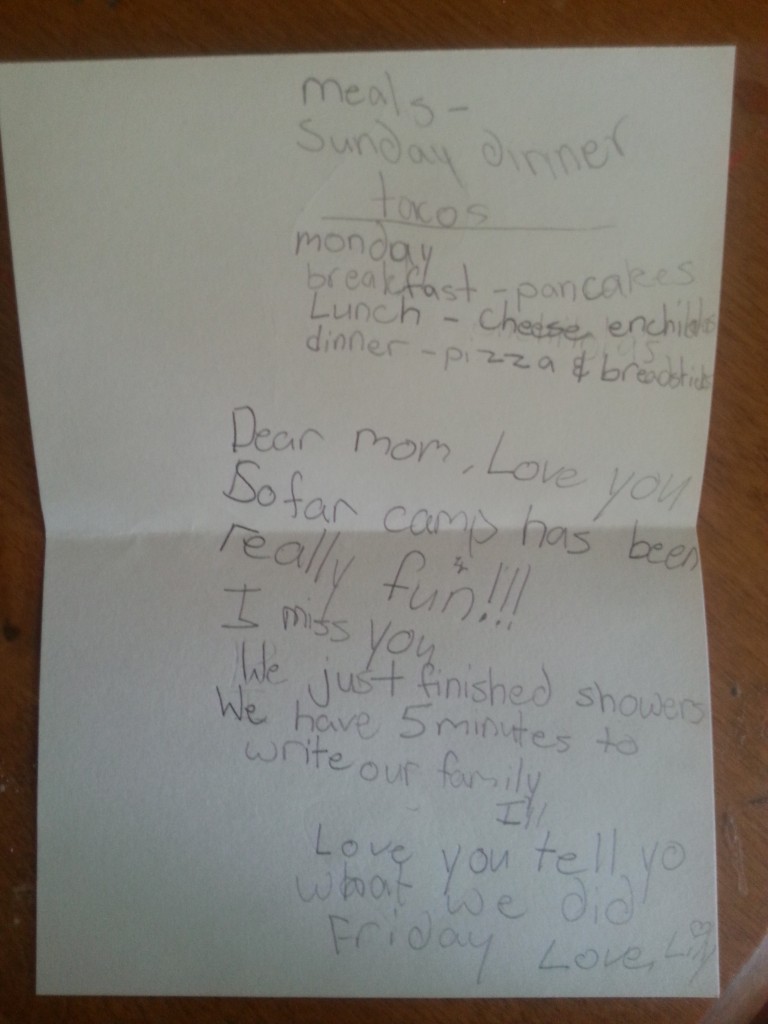 meals -
Sunday dinner
tacos
monday
breakfast - pancakes
Lunch - cheese enchiladas
dinner - pizza & breadsticks
Dear mom, Love you
So far camp has been
really fun!!!
I miss you
We just finished showers
We have 5 minutes to
write our family
I'll
Love you tell yo
what we did
Friday Love, Lily